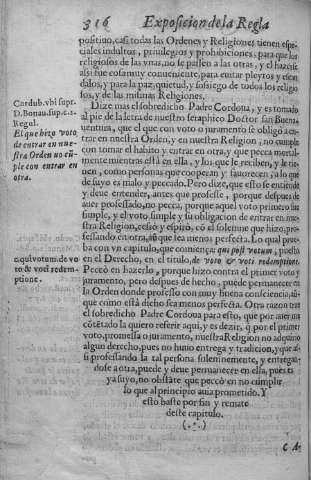 316 Exposicion de la Regla
positiuo, casi todas las Ordenes y Religiones tienen espe-
ciales indultos, priuilegios y prohibiciones, para que los
religiosos de las vnas, no se passen a las otras, y el hazerse
assi fue cosa muy conueniente, para euitar pleytos y escan
dalos, y para la paz, quietud, y sossiego de todos los religio
sos, y de las mismas Religiones.
Cordub. vbi supr.
D. Bonau. sup. c. 2.
Regul.
El que hizo voto
de entrar en nue-
stra Orden no cū-
ple con entrar en
otra.
Dize mas el sobredicho Padre Cordoua, y es tomado
al pie de la letra de nuestro seraphico Doctor san Buena
uentura, que el que con voto o juramento se obligò a en-
trar en nuestra Orden, y en nuestra Religion, no cumple
con tomar el habito y entrar en otra, y que pecca mortal-
mente mientras está en ella, y los que le reciben, y le tie-
nen, como personas que cooperan y fauorecen, a lo que
de suyo es malo y peccado. Pero dize, que esto se entiende
y deue entender, antes que professe, porque despues de
auer professado, no pecca, porque aquel voto primero fue
simple, y el voto simple y su obligacion de entrar en nues-
tra Religion, cessò y espirò, cō el solemne que hizo, pro-
fessando en otra, aūque sea menos perfecta. Lo qual prue-
ba con vn capitulo, que comiença: qui post votum, puesto
en el Derecho, en el titulo, de voto & voti redemptione.
c. qui votum: de vo
to & voti redem-
ptione.
Peccò en hazerlo, porque hizo contra el primer voto y
juramento, pero despues de hecho, puede permanecer en
la Orden donde professo con muy buena consciencia, aū-
que como está dicho sea menos perfecta. Otra razon trae
el sobredicho Padre Cordoua para esto, que por auerme
cōtētado la quiero referir aqui, y es dezir, q̄ por el primer
voto, promessa o juramento, nuestra Religion no adquirio
algun derecho, pues no huuo entrega y tradicion, y que as-
si professando la tal persona solemnemente, y entregan-
dose a otra, puede y deue permanecer en ella, pues es
ya suyo, no obstāte que peccò en no cumplir
lo que al principio auia prometido. Y
esto baste por fin y remate
deste capitulo.
(.·.)
C A-